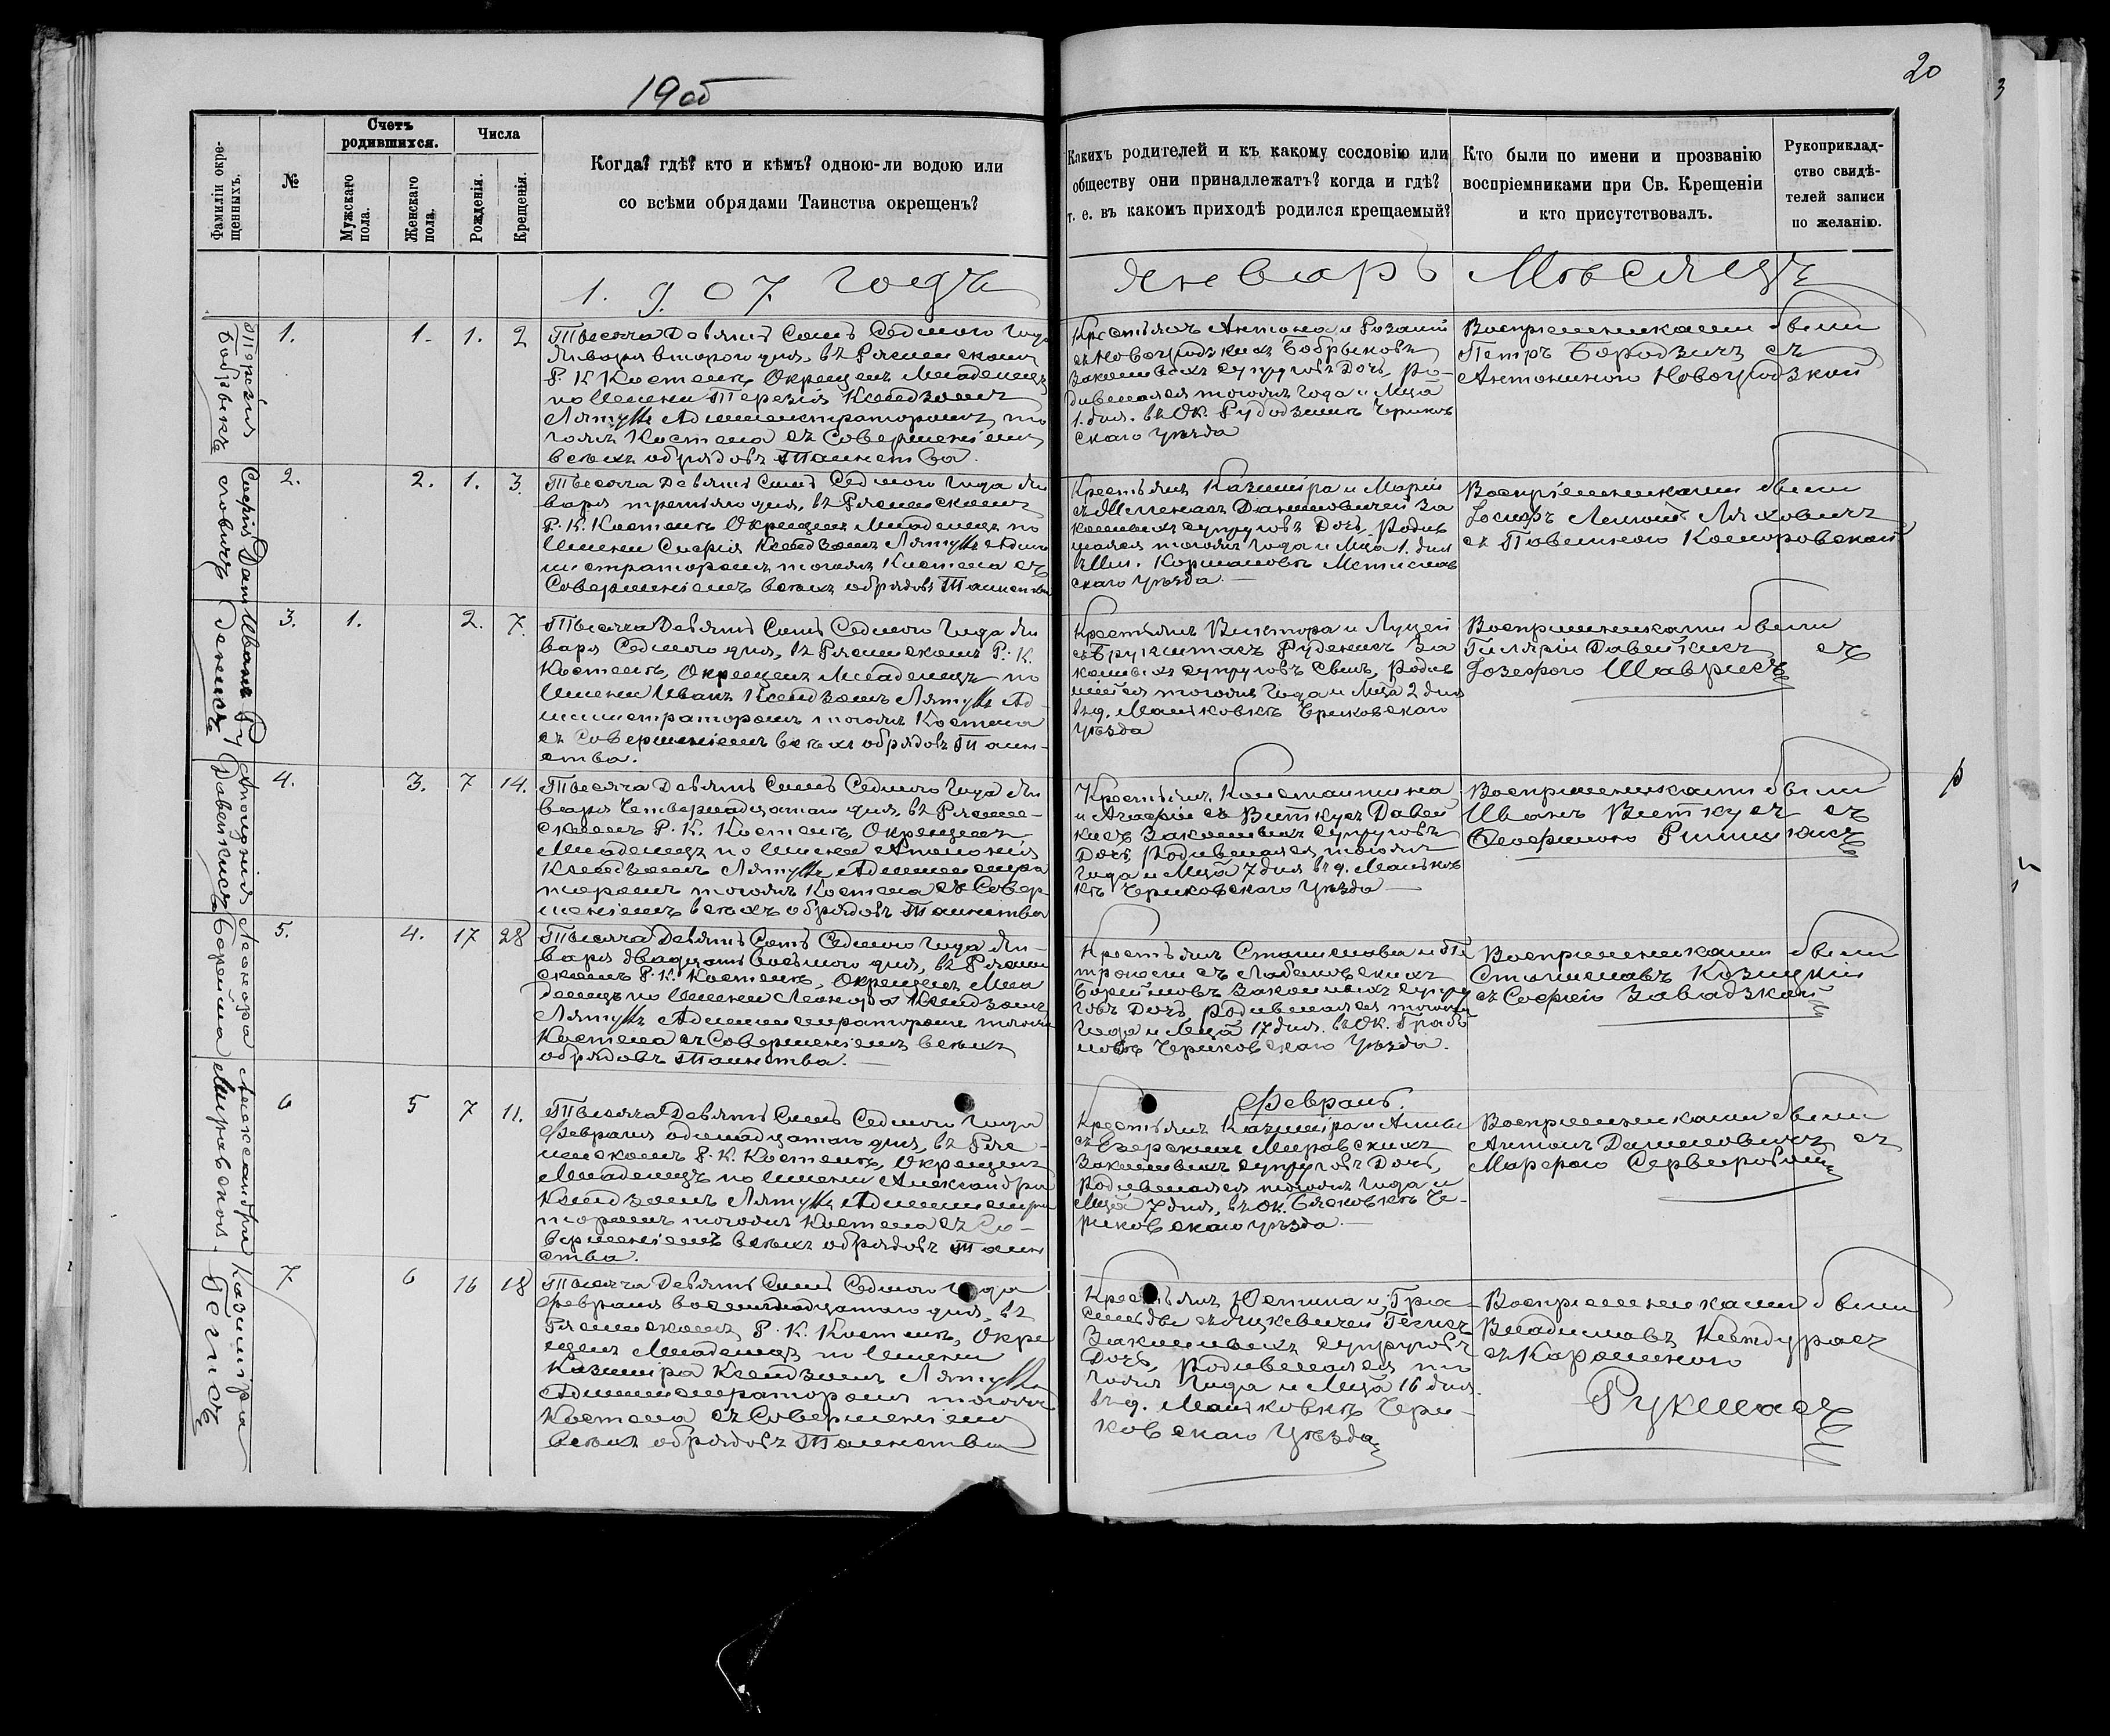 19об
20
3
Фамиліи окре-
щенныхъ.
№
Счетъ
родившихся.
Мужскаго
пола.
Женскаго
пола.
Числа
Рожденія.
Крещенія.
Когда? гдѣ? кто и кѣмъ? одною-ли водою или
со всѣми обрядами Таинства окрещенъ?
Какихъ родителей и къ какому сословію или
обществу они принадлежатъ? когда и гдѣ?
т. е. въ какомъ приходѣ родился крещаемый?
Кто были по имени и прозванію
воспріемниками при Св. Крещеніи
и кто присутствовалъ.
Рукоприклад-
ство свидѣ-
телей записи
по желанію.
1.9.07. годъ
Январь Мѣсяцъ
Терезія
Бобрыкъ
1.
1.
1.
2
Тысяча Девять Сотъ Седмого Года
Января второго дня, въ Рясненскомъ
Р. К. Костелѣ Окрещенъ Младенецъ
по Имени Терезія Ксендзомъ
Администраторомъ то
гожъ Костела съ Совершеніемъ
всѣхъ обрядовъ Таинства.
Крестьянъ Антона и Розаліи
съ Новогродзкихъ Бобрыковъ
Законныхъ супруговъ Дочь, ро-
дившаяся тогожъ Года и Мца
1. дня. въ Ок. Чериков
скаго уѣзда
Воспріемниками были
Петръ Бородзичъ съ
Антониною Новогродзкой
Софія Дани
ловичъ
2.
2.
1.
3.
Тысяча Девять Сотъ Седмого Года Ян
варя третьяго дня, въ Рясненскомъ
Р. К. Костелѣ Окрещенъ Младенецъ по
Имени Софія Ксендзомъ Адми
нистраторомъ тогожъ Костела съ
Совершеніемъ всѣхъ обрядовъ Таинства
Крестьянъ Казиміра и Маріи
Даниловичей За
конныхъ супруговъ Дочь, Родив
шаяся тогожъ Года и Мца 1. дня
Мстислав
скаго уѣзда.
Воспріемниками были
Ляховичъ
съ Павелиною Коморовской
Иванъ Ру
денисъ
3.
1.
2.
7.
Тысяча Девять Сотъ Седмого Года Ян
варя Седмого дня, въ Рясненскомъ Р. К.
Костелѣ, Окрещенъ Младенецъ по
Имени Иванъ Ксендзомъ Ад-
министраторомъ тогожъ Костела
съ Совершеніемъ всѣхъ обрядовъ Таин-
ства.
Крестьянъ Виктора и Луціи
Руденисъ За
конныхъ супруговъ Сынъ, родив
шійся тогожъ Года и Мца 2 дня
въ д. Маньковкѣ Чериковскаго
уѣзда
Воспріемниками были
Гилярій Давейкисъ съ
Іозефою
Аполонія
Давейкисъ
4.
3.
7
14.
Тысяча Девять Сотъ Седмого Года Ян
варя Четвернадцатаго дня, въ Рясне-
скомъ Р. К. Костелѣ, Окрещенъ
Младенецъ по Имени Аполонія
Ксендзомъ Администра
торомъ тогожъ Костела съ Совер-
шеніемъ всѣхъ обрядовъ Таинства
Крестьянъ Константина
и Агафіи съ Виткусъ Давей
кисъ Законныхъ супруговъ
Дочь, Родившаяся тогожъ
Года и Мца 7 дня въ д. Маньков
кѣ Чериковскаго уѣзда
Воспріемниками были
Иванъ Виткусъ съ
Леонора
Борейша
5.
4.
17
28
Тысяча Девять Сотъ Седмого Года Ян-
варя двадцать восьмого дня, въ Ряснен
скомъ Р. К. Костелѣ, Окрещенъ Мла
денецъ по Имени Леонора Ксендзомъ
Администраторомъ тогожъ
Костела съ Совершеніемъ всѣхъ
обрядовъ Таинства.
Крестьянъ Станислава и Пе
тронели съ
Законныхъ супру
говъ Дочь, родившаяся тогожъ
Года и Мца 17 дня. въ Ок.
Чериковскаго уѣзда.
Воспріемниками были
Станиславъ Козицкій
съ Софіею Завадзкой
Февраль.
Александра
Миравская.
6
5
7
11.
Тысяча Девять Сотъ Седмого Года
Февраля одинадцатаго дня, въ Ряс-
ненскомъ Р. К. Костелѣ, Окрещенъ
Младенецъ по Имени Александра
Ксендзомъ Администра
торомъ тогожъ Костела съ Со-
вершеніемъ всѣхъ обрядовъ Таин
ства.
Крестьянъ Казиміра и Анны
съ Езерскихъ Миравскихъ
Законныхъ супруговъ Дочь,
Родившаяся тогожъ Года и
Мца 7 дня, въ Ок. Че-
риковскаго уѣзда.
Воспріемниками были
Антонъ Даниловичъ съ
Казиміра
Гегисъ
7.
6
16
18
Тысяча Девять Сотъ Седмого Года
Февраля восемнадцатаго дня, въ
Рясненскомъ Р. К. Костелѣ, Окре
щенъ Младенецъ по Имени
Казиміра Ксендзомъ
Администраторомъ тогожъ
Костела съ Совершеніемъ
всѣхъ обрядовъ Таинства
Крестьянъ Юстина и
Гегисъ
Законныхъ супруговъ
Дочь, Родившаяся то
гожъ Года и Мца 16 дня.
въ д. Маньковкѣ Чери-
ковскаго уѣзда
Воспріемниками были
Владиславъ
съ Каролиною